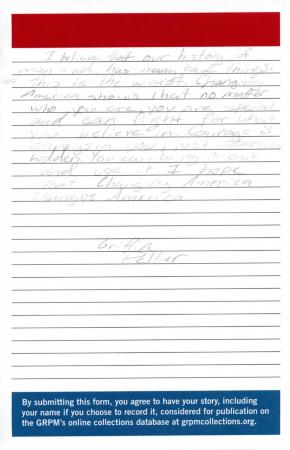 I believe that our history of
man kind has many bad things
This is the worst. Changing
America shows that no matter
who you are, you are special
and can fight for what
you believe in. Courage is
always in you, just
hidden. You can bring it out
and use it. I hope
that Changing America
changes America.
Griffin
By submitting this form, you agree to have your story, including
your name if you choose to record it, considered for publication on
the GRPM's online collections database at grpmcollections.org.